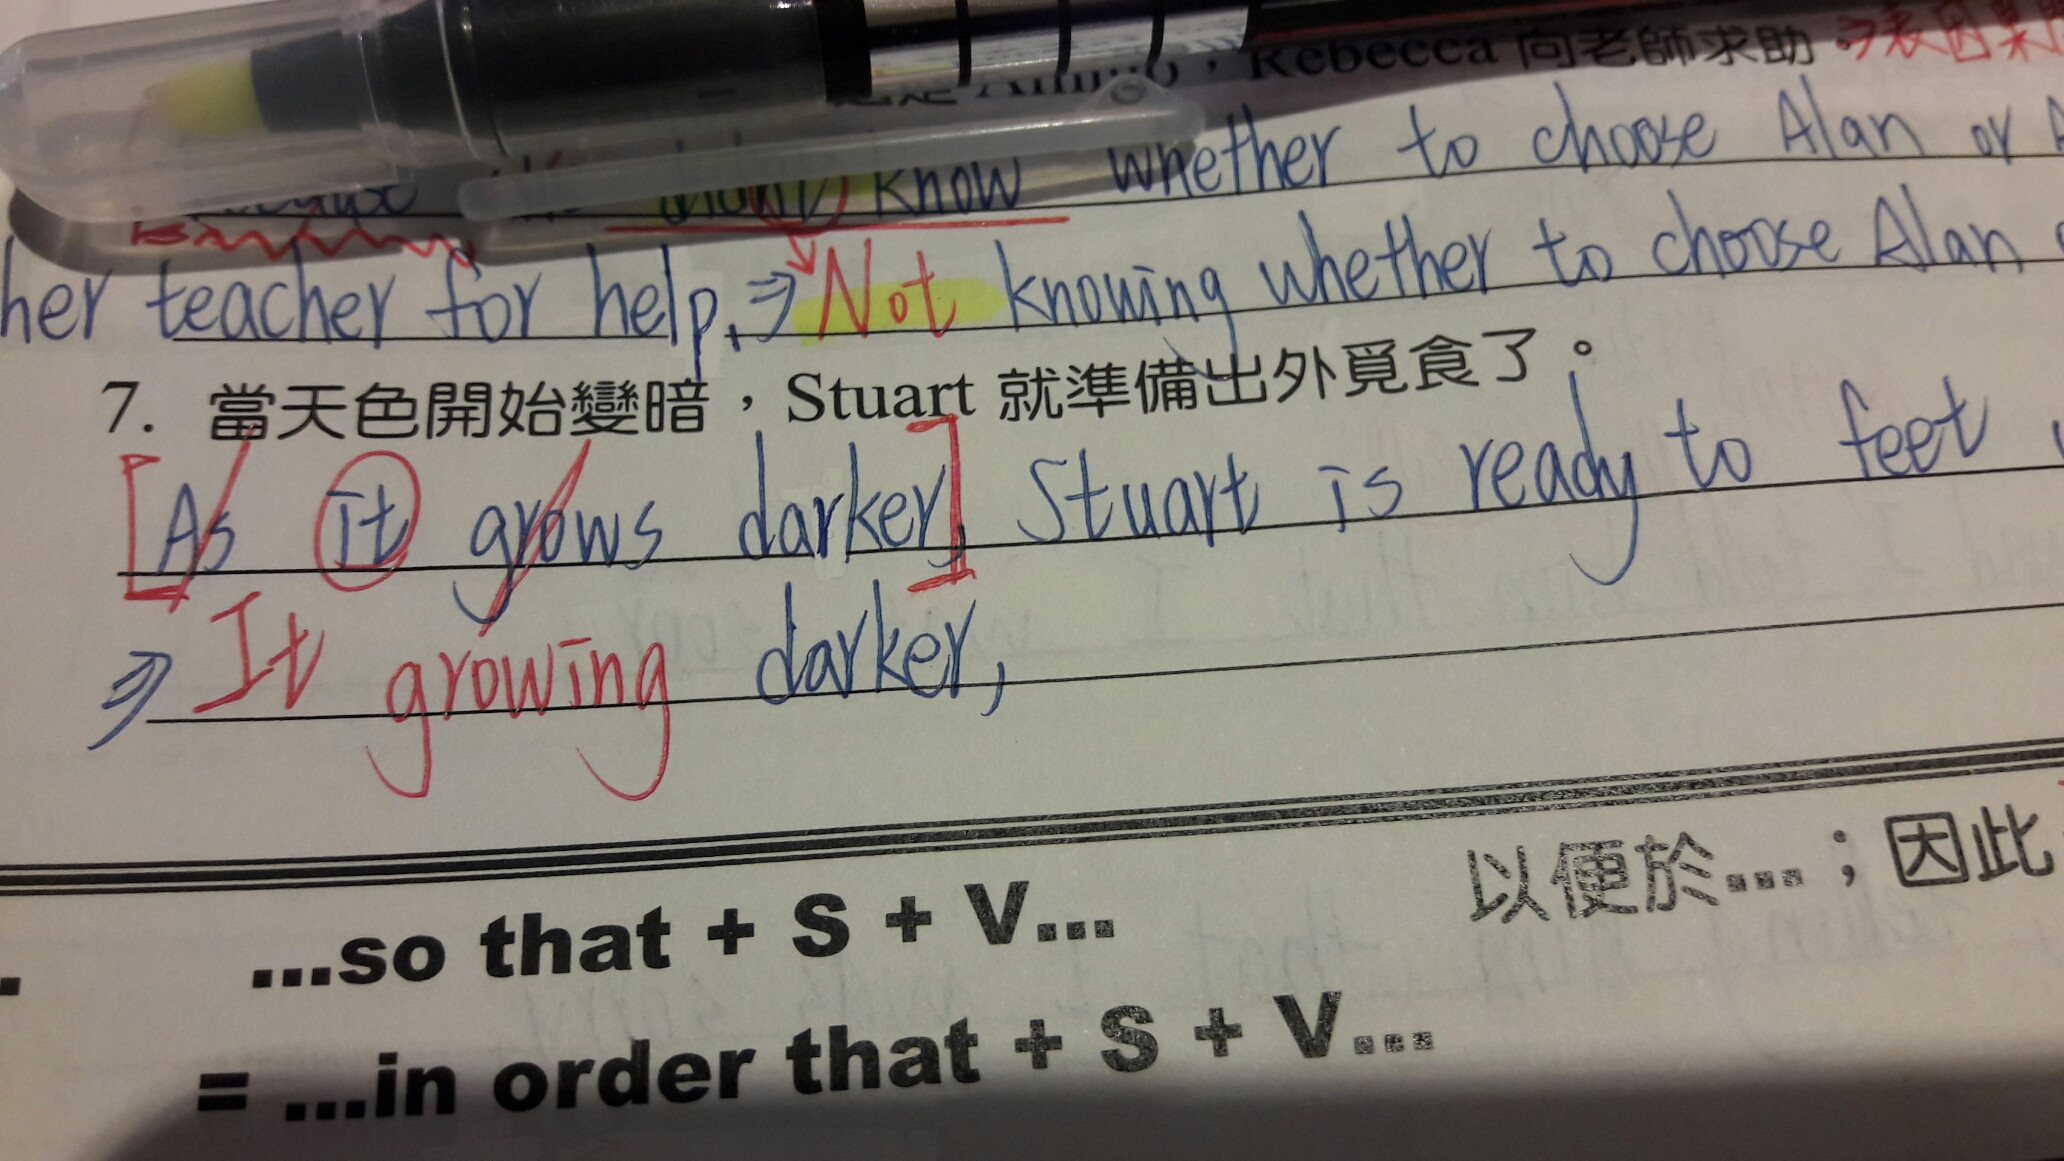 ，Rebecca 向老師求助。⇒表因果
know whether to choose Alan or A
her teacher for help. ⇒ Not knowing whether to choose Alan
7. 當天色開始變暗，Stuart 就準備出外覓食了。
[As it grows darker], Stuart is ready to feet
⇒ It growing darker,
...so that + S + V... 以便於...；因此
= ...in order that + S + V...